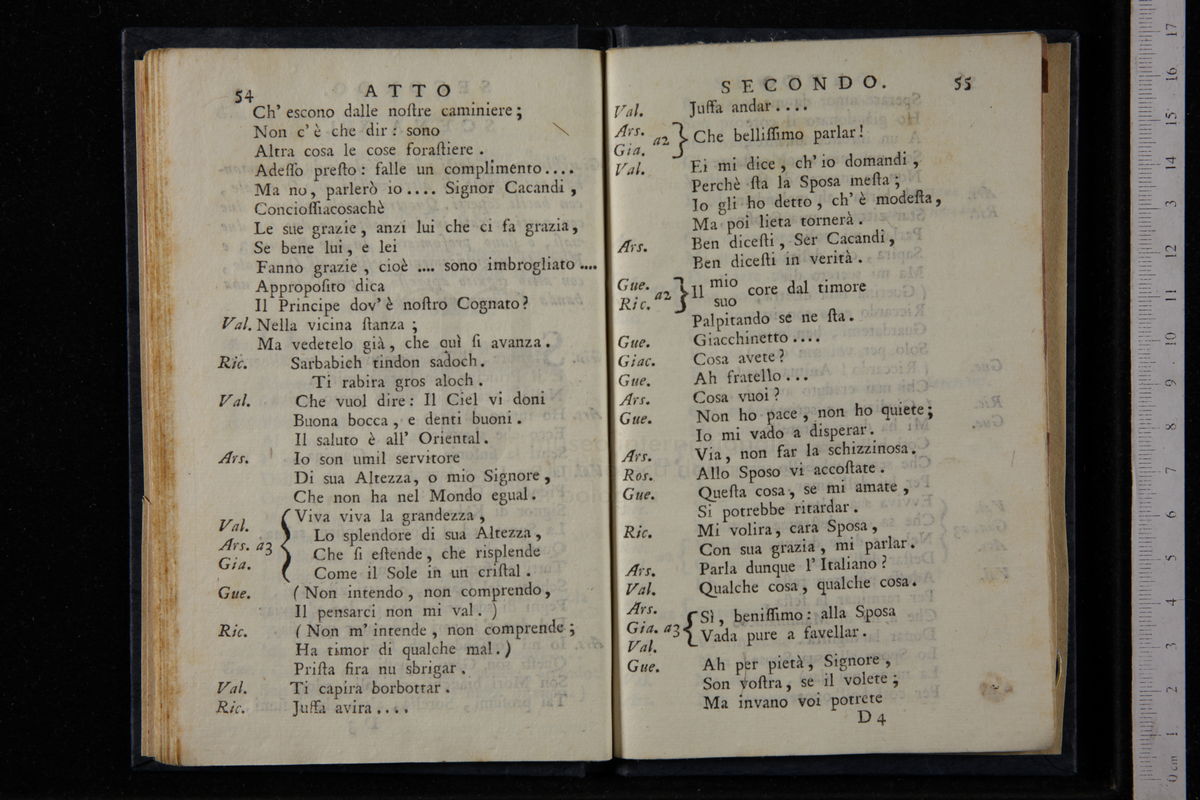 54
ATTO
Ch' escono dalle noſtre caminiere;
Non c'è che dir: sono
Altra cosa le cose foraſtiere.
Adeſſo preſto: falle un complimento....
Ma no, parlerò io.... Signor Cacandi,
Concioſſiacosachè
Le sue grazie, anzi lui che ci fa grazia,
Se bene lui, e lei
Fanno grazie, cioè .... sono imbrogliato....
Appropoſito dica
Il Principe dov'è noſtro Cognato?
Val. Nella vicina ſtanza;
Ma vedetelo già, che quì ſi avanza.
Ric. Sarbabich tindon sadoch.
Ti rabira gros aloch.
Val. Che vuol dire: Il Ciel vi doni
Buona bocca, e denti buoni.
Il saluto è all' Oriental.
Ars. Io son umil servitore
Di sua Altezza, o mio Signore,
Che non ha nel Mondo egual.
Val. Viva viva la grandezza,
Lo splendore di sua Altezza,
Ars. a3
Che ſi eſtende, che risplende
Gia. Come il Sole in un criſtal.
Gue. (Non intendo, non comprendo,
Il pensarci non mi val.)
Ric. (Non m' intende, non comprende;
Ha timor di qualche mal.)
Priſta ſira nu sbrigar.
Val. Ti capira borbottar.
Ric. Juſſa avira....
SECONDO.
55
Val. Juſſa andar....
Ars.
a2 Che belliſſimo parlar!
Gia.
Val. Ei mi dice, ch' io domandi,
Perchè ſta la Sposa meſta;
Io gli ho detto, ch' è modeſta,
Ma poi lieta tornerà.
Ars. Ben diceſti, Ser Cacandi,
Ben diceſti in verità.
Gue. mio
a2 Il core dal timore
Ric. suo
Palpitando se ne ſta.
Gue. Giacchinetto....
Giac. Cosa avete?
Gue. Ah fratello...
Ars. Cosa vuoi?
Gue. Non ho pace, non ho quiete;
Io mi vado a disperar.
Ars. Via, non far la schizzinosa.
Ros. Allo Sposo vi accoſtate.
Gue. Queſta cosa, se mi amate,
Si potrebbe ritardar.
Ric. Mi volira, cara Sposa,
Con sua grazia, mi parlar.
Ars. Parla dunque l' Italiano?
Val. Qualche cosa, qualche cosa.
Ars. Sì, beniſſimo: alla Sposa
Gia. a3
Vada pure a favellar.
Val.
Gue. Ah per pietà, Signore,
Son voſtra, se il volete;
Ma invano voi potrete
D 4
0 cm 1 2 3 4 5 6 7 8 9 10 11 12 13 14 15 16 17